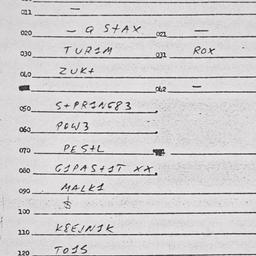 011 —
020 — G STAX 021 —
030 TUR1M 031 ROX
040 ZUKT
042 —
050 S+PR1NG83
060 POW3
070 PESTL
080 G1PAS+1T XX
090 MALK1
100
110 K8EJN1K
120 TO1S